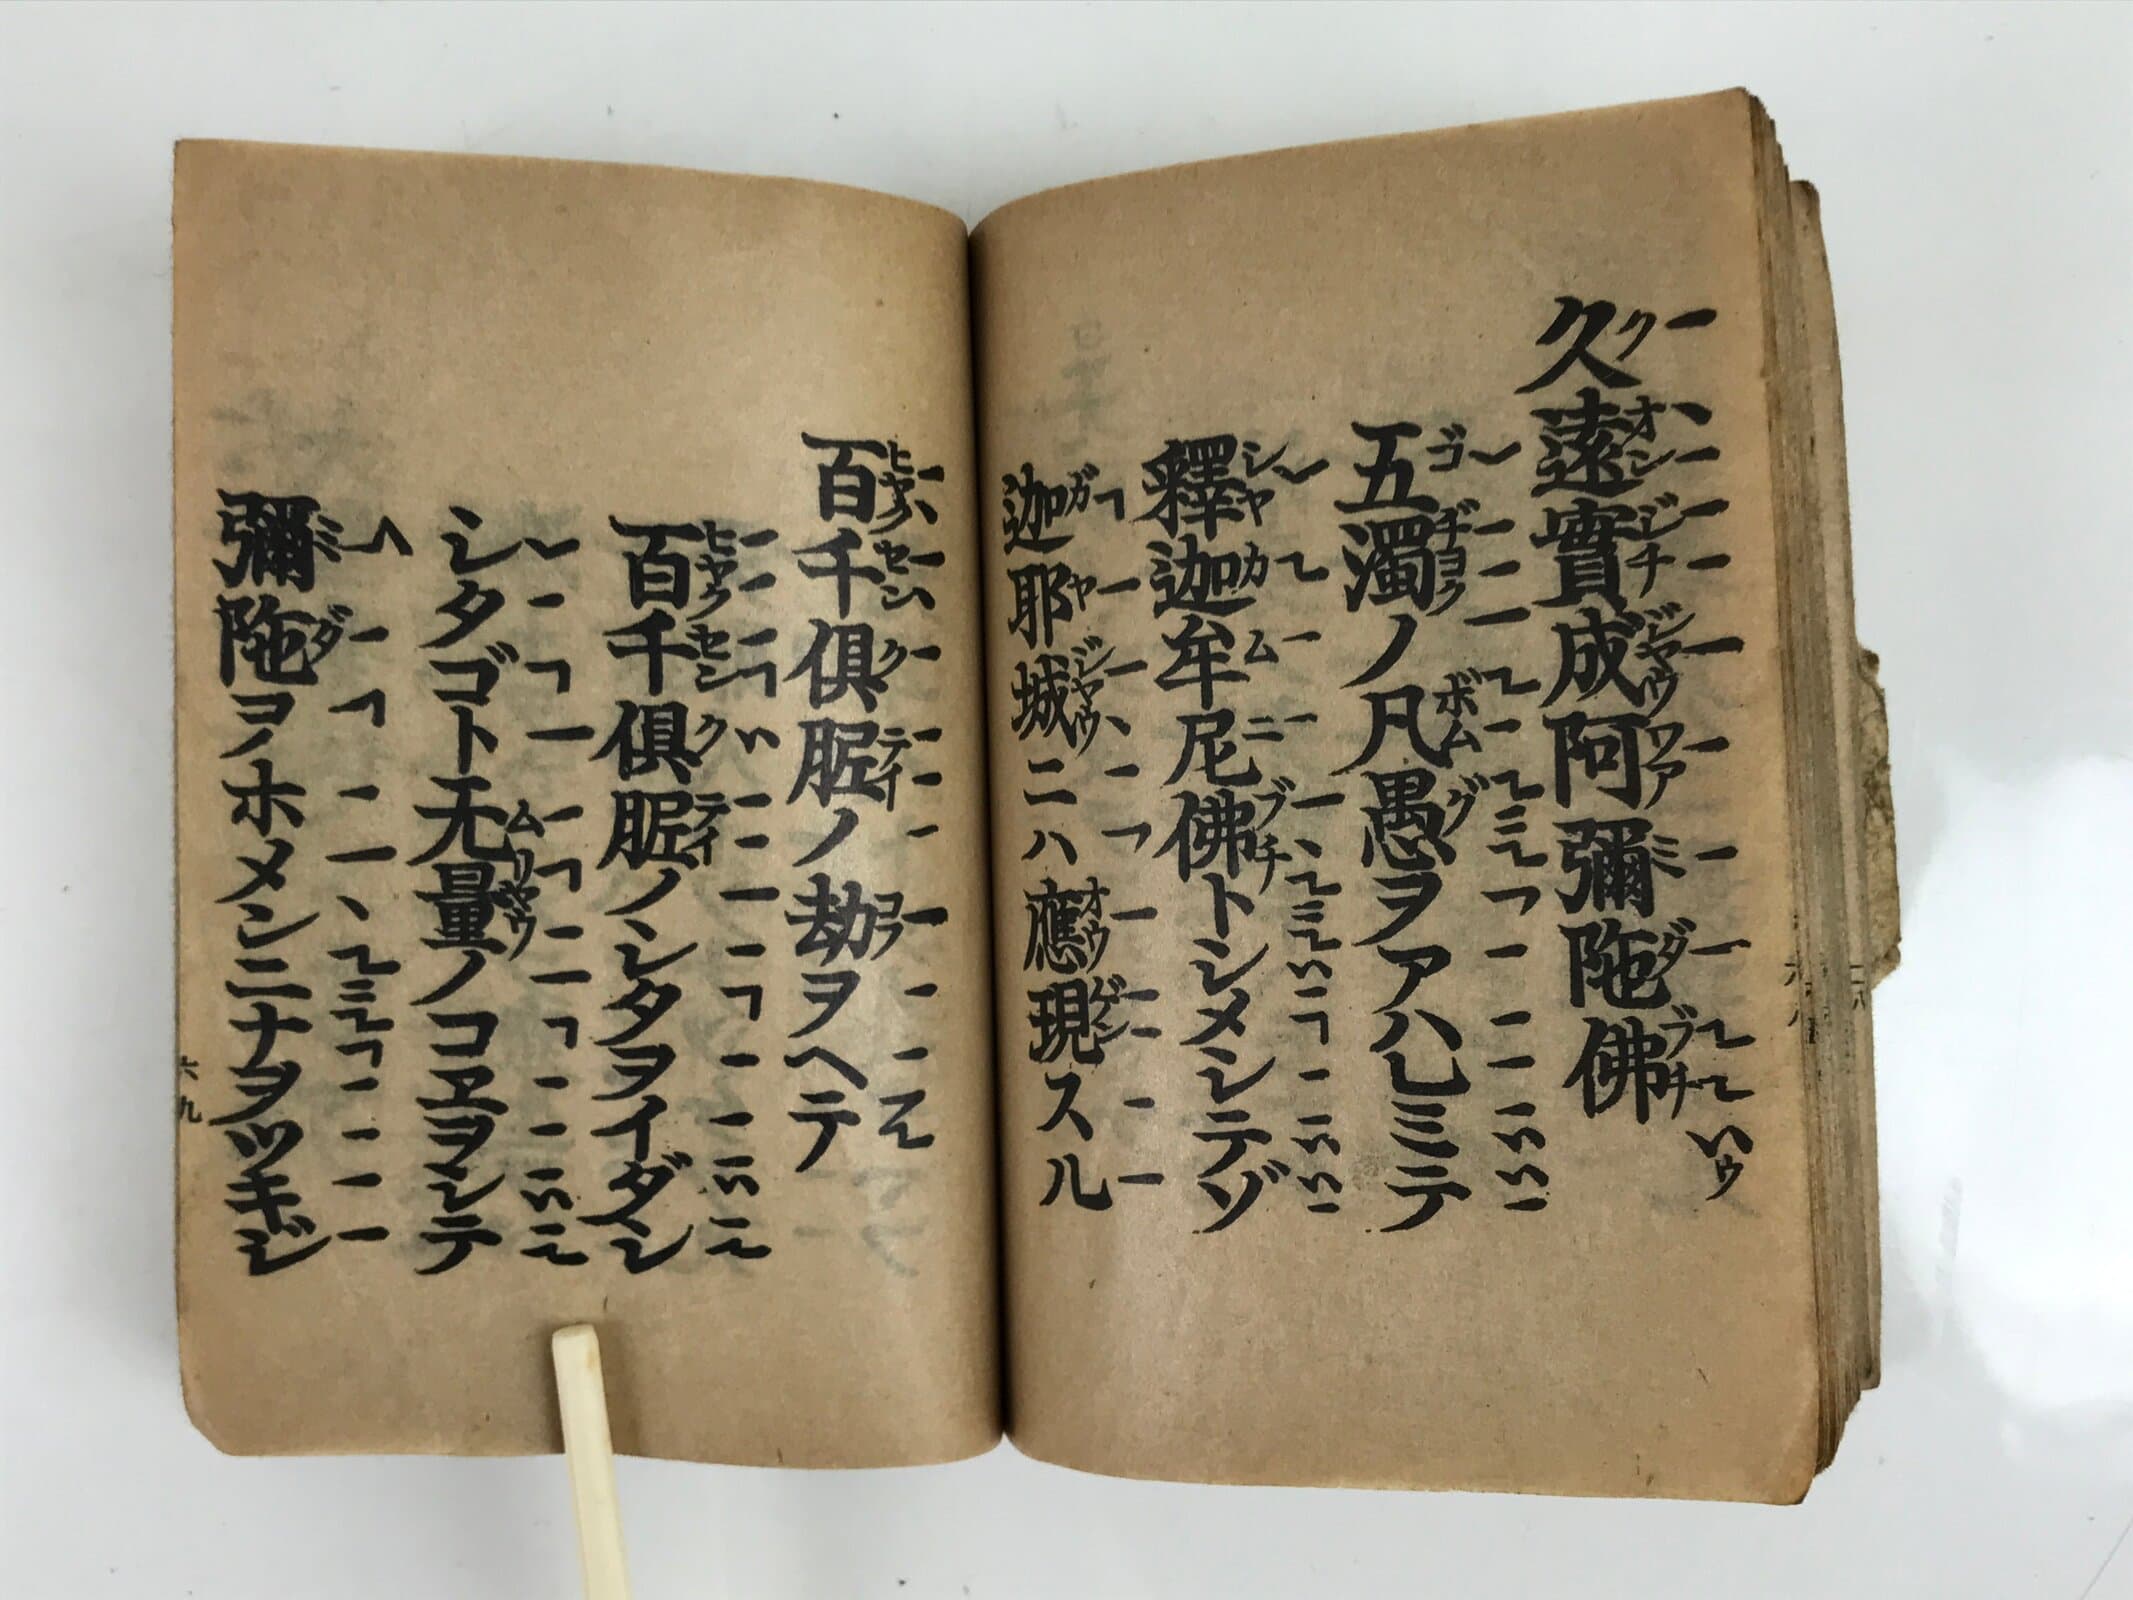 久遠實成阿彌陁佛
五濁ノ凡愚ヲアハレミテ
釋迦牟尼佛トシメシテゾ
迦耶城ニハ應現スル
百千俱胝ノ劫ヲヘテ
百千俱胝ノシタヲイダシ
シタゴト无量ノコヱヲシテ
彌陁ヲホメンニナヲツキジ
六九